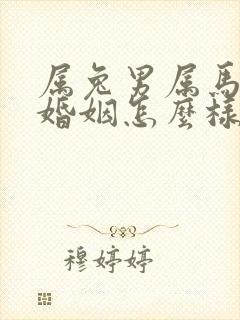 属兔男属馬
婚姻怎麼樣
穆婷婷